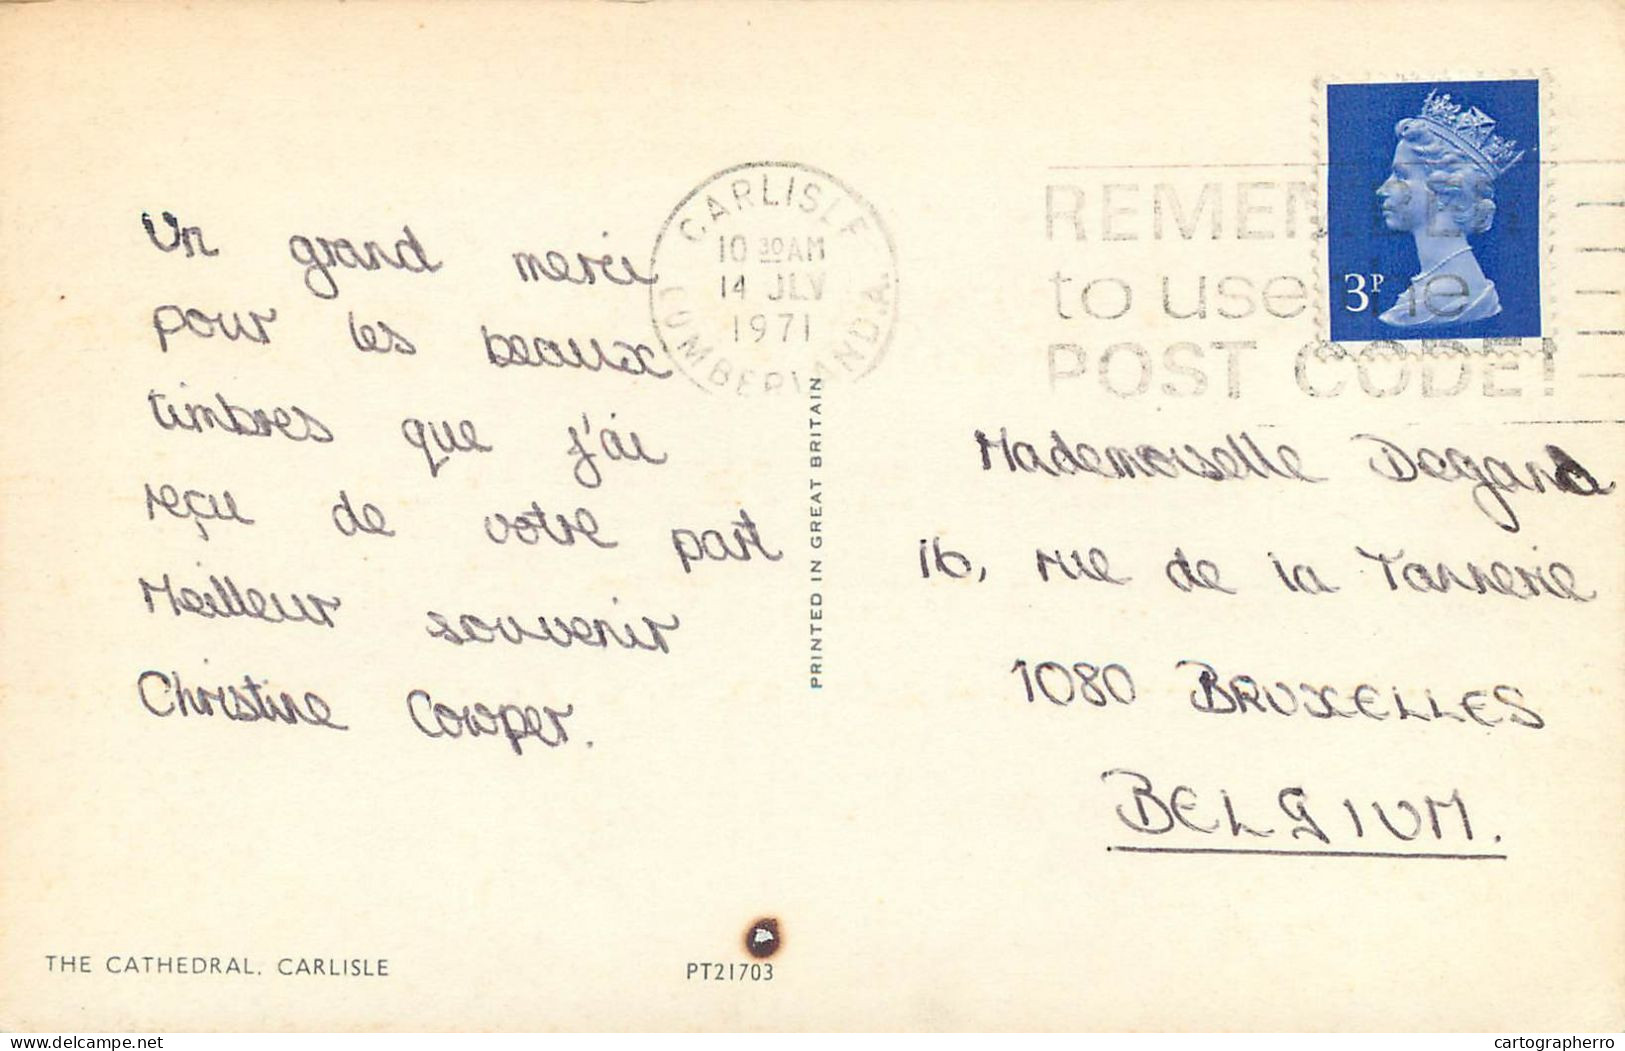 Un grand merci
pour les beaux
timbres que j'ai
reçu de votre part
Meilleur souvenir
Christine Cowper.
THE CATHEDRAL, CARLISLE
PT21703
PRINTED IN GREAT BRITAIN
CARLISLE
10 30 AM
14 JLY
1971
CUMBERLAND A
REMEMBER
to use the
POST CODE!
3P
Mademoiselle Degand
16, rue de la Tannerie
1080 BRUXELLES
BELGIUM.
www.delcampe.net
cartographerro